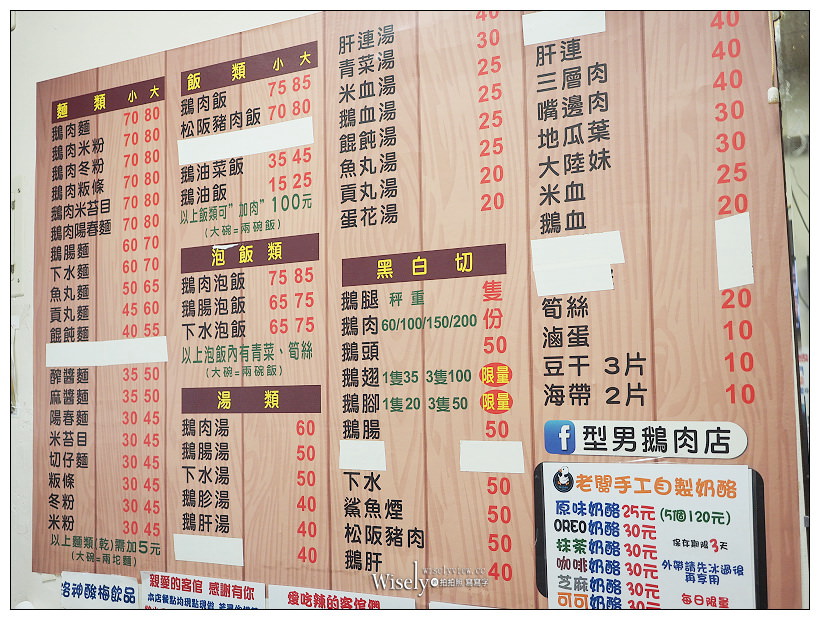 麵類 小 大
鵝肉麵 70 80
鵝肉米粉 70 80
鵝肉冬粉 70 80
鵝肉粄條 70 80
鵝肉米苔目 70 80
鵝肉陽春麵 70 80
鵝腸麵 60 70
下水麵 60 70
魚丸麵 50 65
貢丸麵 45 60
餛飩麵 40 55
醡醬麵 35 50
麻醬麵 35 50
陽春麵 30 45
米苔目 30 45
切仔麵 30 45
粄條 30 45
冬粉 30 45
米粉 30 45
以上麵類(乾)需加5元
(大碗=兩坨麵)
飯類 小 大
鵝肉飯 75 85
松阪豬肉飯 70 80
鵝油菜飯 35 45
鵝油飯 15 25
以上飯類可"加肉"100元
(大碗=兩碗飯)
泡飯類
鵝肉泡飯 75 85
鵝腸泡飯 65 75
下水泡飯 65 75
以上泡飯內有青菜、筍絲
(大碗=兩碗飯)
湯類
鵝肉湯 60
鵝腸湯 50
下水湯 50
鵝胗湯 40
鵝肝湯 40
40
肝連湯 40
青菜湯 30
米血湯 25
鵝血湯 25
餛飩湯 25
魚丸湯 25
貢丸湯 20
蛋花湯 20
黑白切
鵝腿 秤重 隻
鵝肉 60/100/150/200 份
鵝頭 50
鵝翅 1隻35 3隻100 限量
鵝腳 1隻20 3隻50 限量
鵝腸 50
下水 50
鯊魚煙 50
松阪豬肉 50
鵝肝 40
肝連 40
三層肉 40
嘴邊肉 40
地瓜葉 30
大陸妹 30
米血 25
鵝血 20
筍絲 20
滷蛋 10
豆干 3片 10
海帶 2片 10
f 型男鵝肉店
老闆手工自製奶酪
原味奶酪25元 (5個120元)
OREO奶酪30元
抹茶奶酪30元 保存期限3天
咖啡奶酪30元 外帶請先冰過後
再享用
芝麻奶酪30元
可可奶酪30元 每日限量
洛神酸梅飲品
親愛的客倌 感謝有你
愛吃辣的客倌們
Wisely 拍拍照 寫寫字